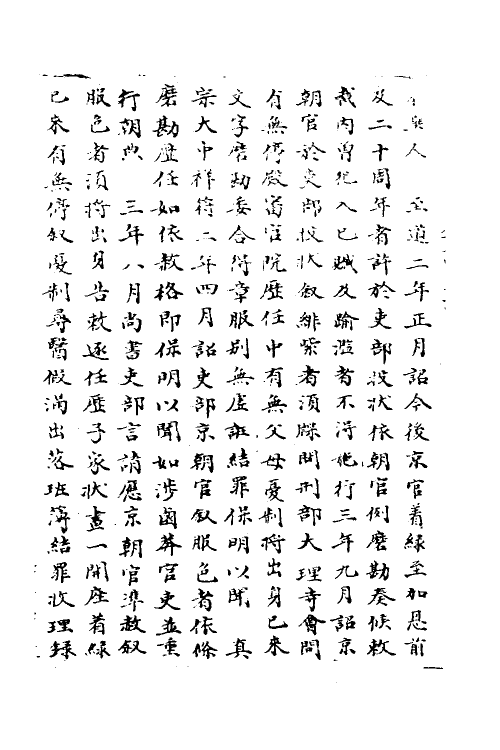 與人　至道二年正月詔今後京官着緑至加恩前
及二十周年者許於吏部投狀依朝官例磨勘奏候敕
裁内曾犯入已贓及踰濫者不得施行三年九月詔京
朝官於吏部投狀叙緋紫者須牒問刑部大理寺會問
有無停殿審官院歷任中有無父母憂制將出身已来
文字磨勘委合得章服别無虚誑結罪保明以聞　真
宗大中祥符二年四月詔吏部京朝官叙服色者依條
磨勘歷任如依赦格即保明以聞如涉鹵莽官吏並重
行朝典　三年八月尚書吏部言請應京朝官準赦叙
服色者須將出身告敕逐任歷子家狀畫一開座着緑
已来有無停叙憂制尋醫假滿出落班簿結罪收理録